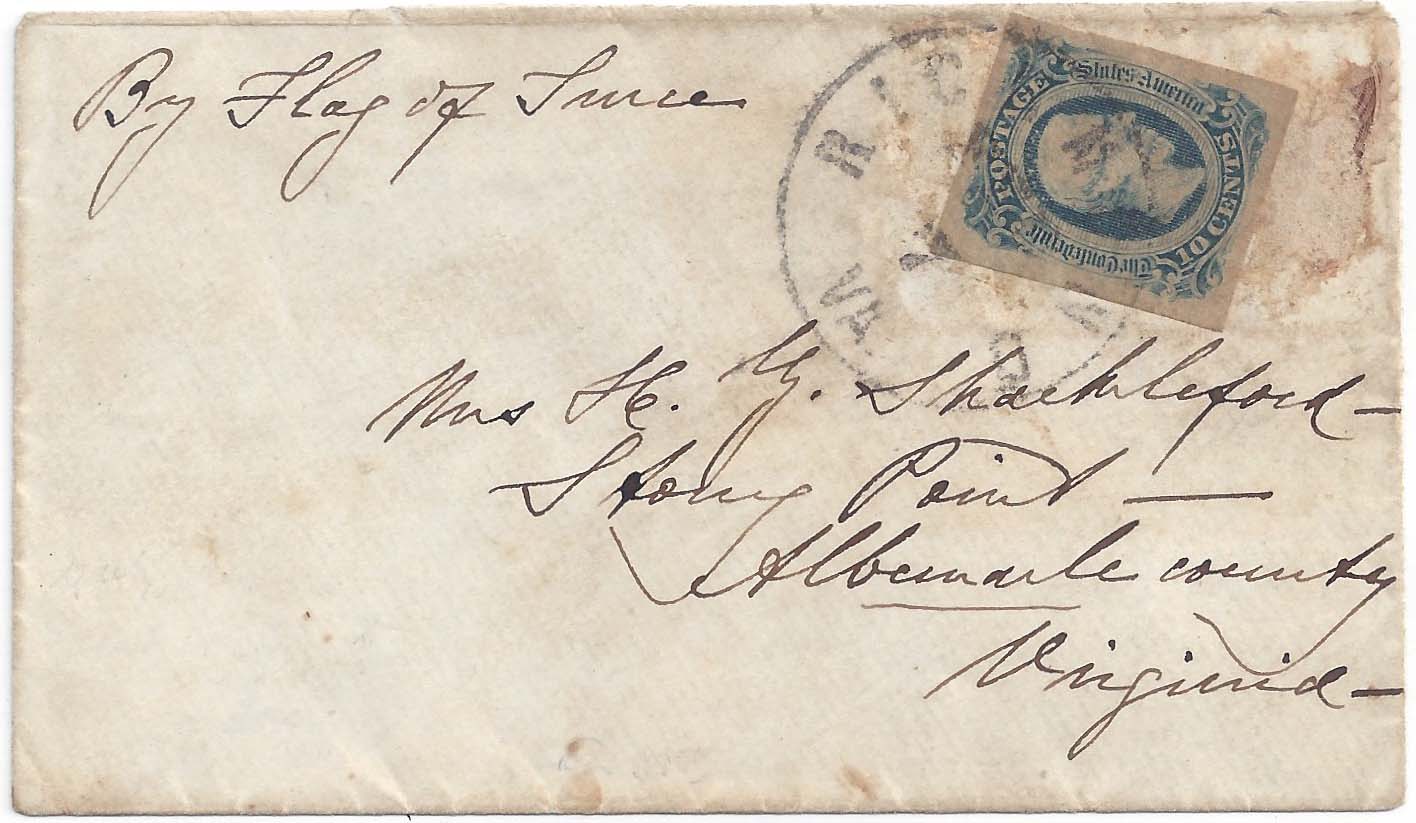 By Flag of Truce
RIC
VA.
POSTAGE
The Confederate States America
10 CENTS
Mrs H. Y. Shackleford —
Stony Point —
Albemarle county
Virginia —